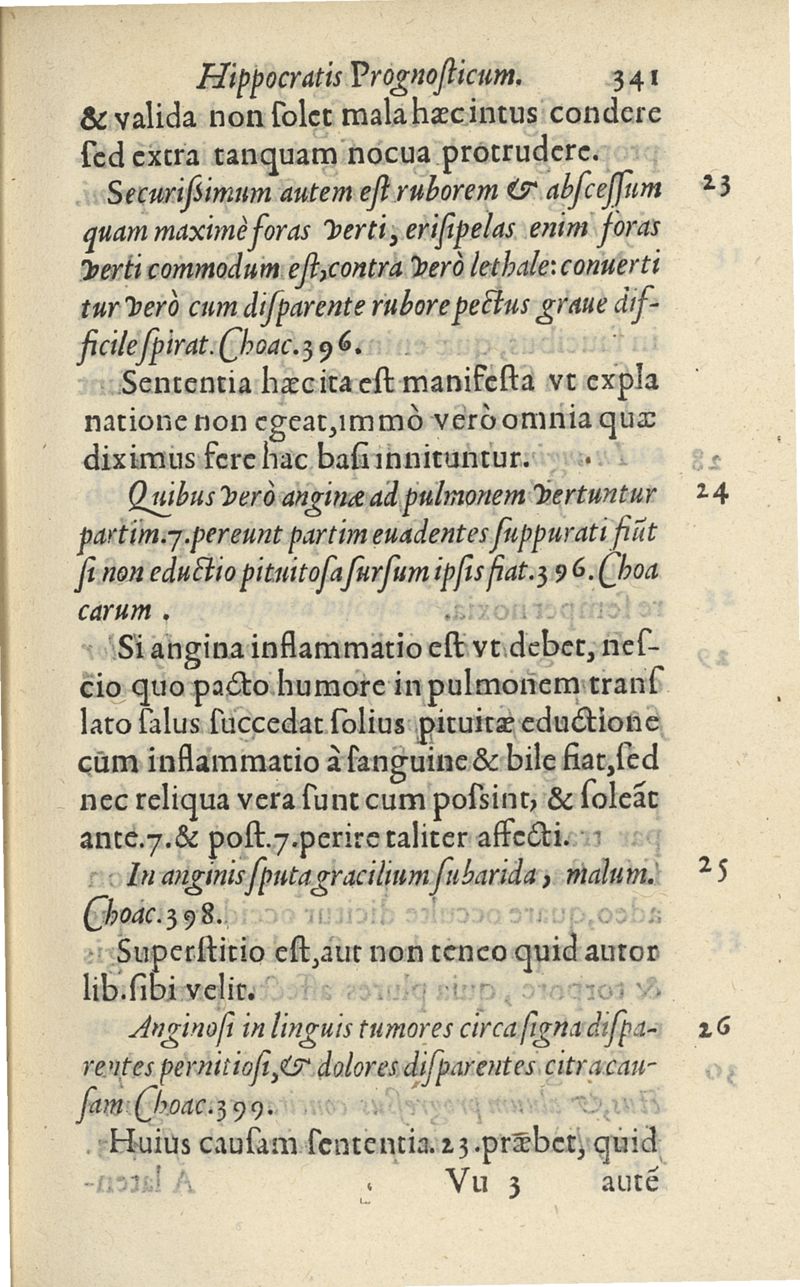 Hippocratis Prognosticum. 341
& valida non ſolet mala hæc intus condere
ſed extra tanquam nocua protrudere.
Securiſsimum autem eſt ruborem & abſceſſum 23
quam maximè foras verti, eriſipelas enim foras
verti commodum eſt, contra verò lethale: conuerti
tur verò cum diſparente rubore pectus graue dif-
ficile ſpirat. Choac. 396.
Sententia hæc ita eſt manifeſta vt expla
natione non egeat, immò verò omnia quæ
diximus fere hac baſi innituntur.
Quibus verò anginæ ad pulmonem vertuntur 24
partim .7. pereunt partim euadentes ſuppurati fiūt
ſi non eductio pituitoſa ſurſum ipſis fiat. 396. Choa
carum .
Si angina inflammatio eſt vt debet, neſ-
cio quo pacto humore in pulmonem tranſ
lato ſalus ſuccedat ſolius pituitæ eductione
cùm inflammatio à ſanguine & bile fiat, ſed
nec reliqua vera ſunt cum poſsint, & ſoleāt
ante .7. & poſt .7. perire taliter affecti.
In anginis ſputa gracilium ſubarida, malum. 25
Choac. 398.
Superſtitio eſt, aut non teneo quid autor
lib. ſibi velit.
Anginoſi in linguis tumores circa ſigna diſpa- 26
rentes pernitioſi, & dolores diſparentes citra cau-
ſam Choac. 399.
Huius cauſam ſententia. 23. præbet, quid
Vu 3 autē